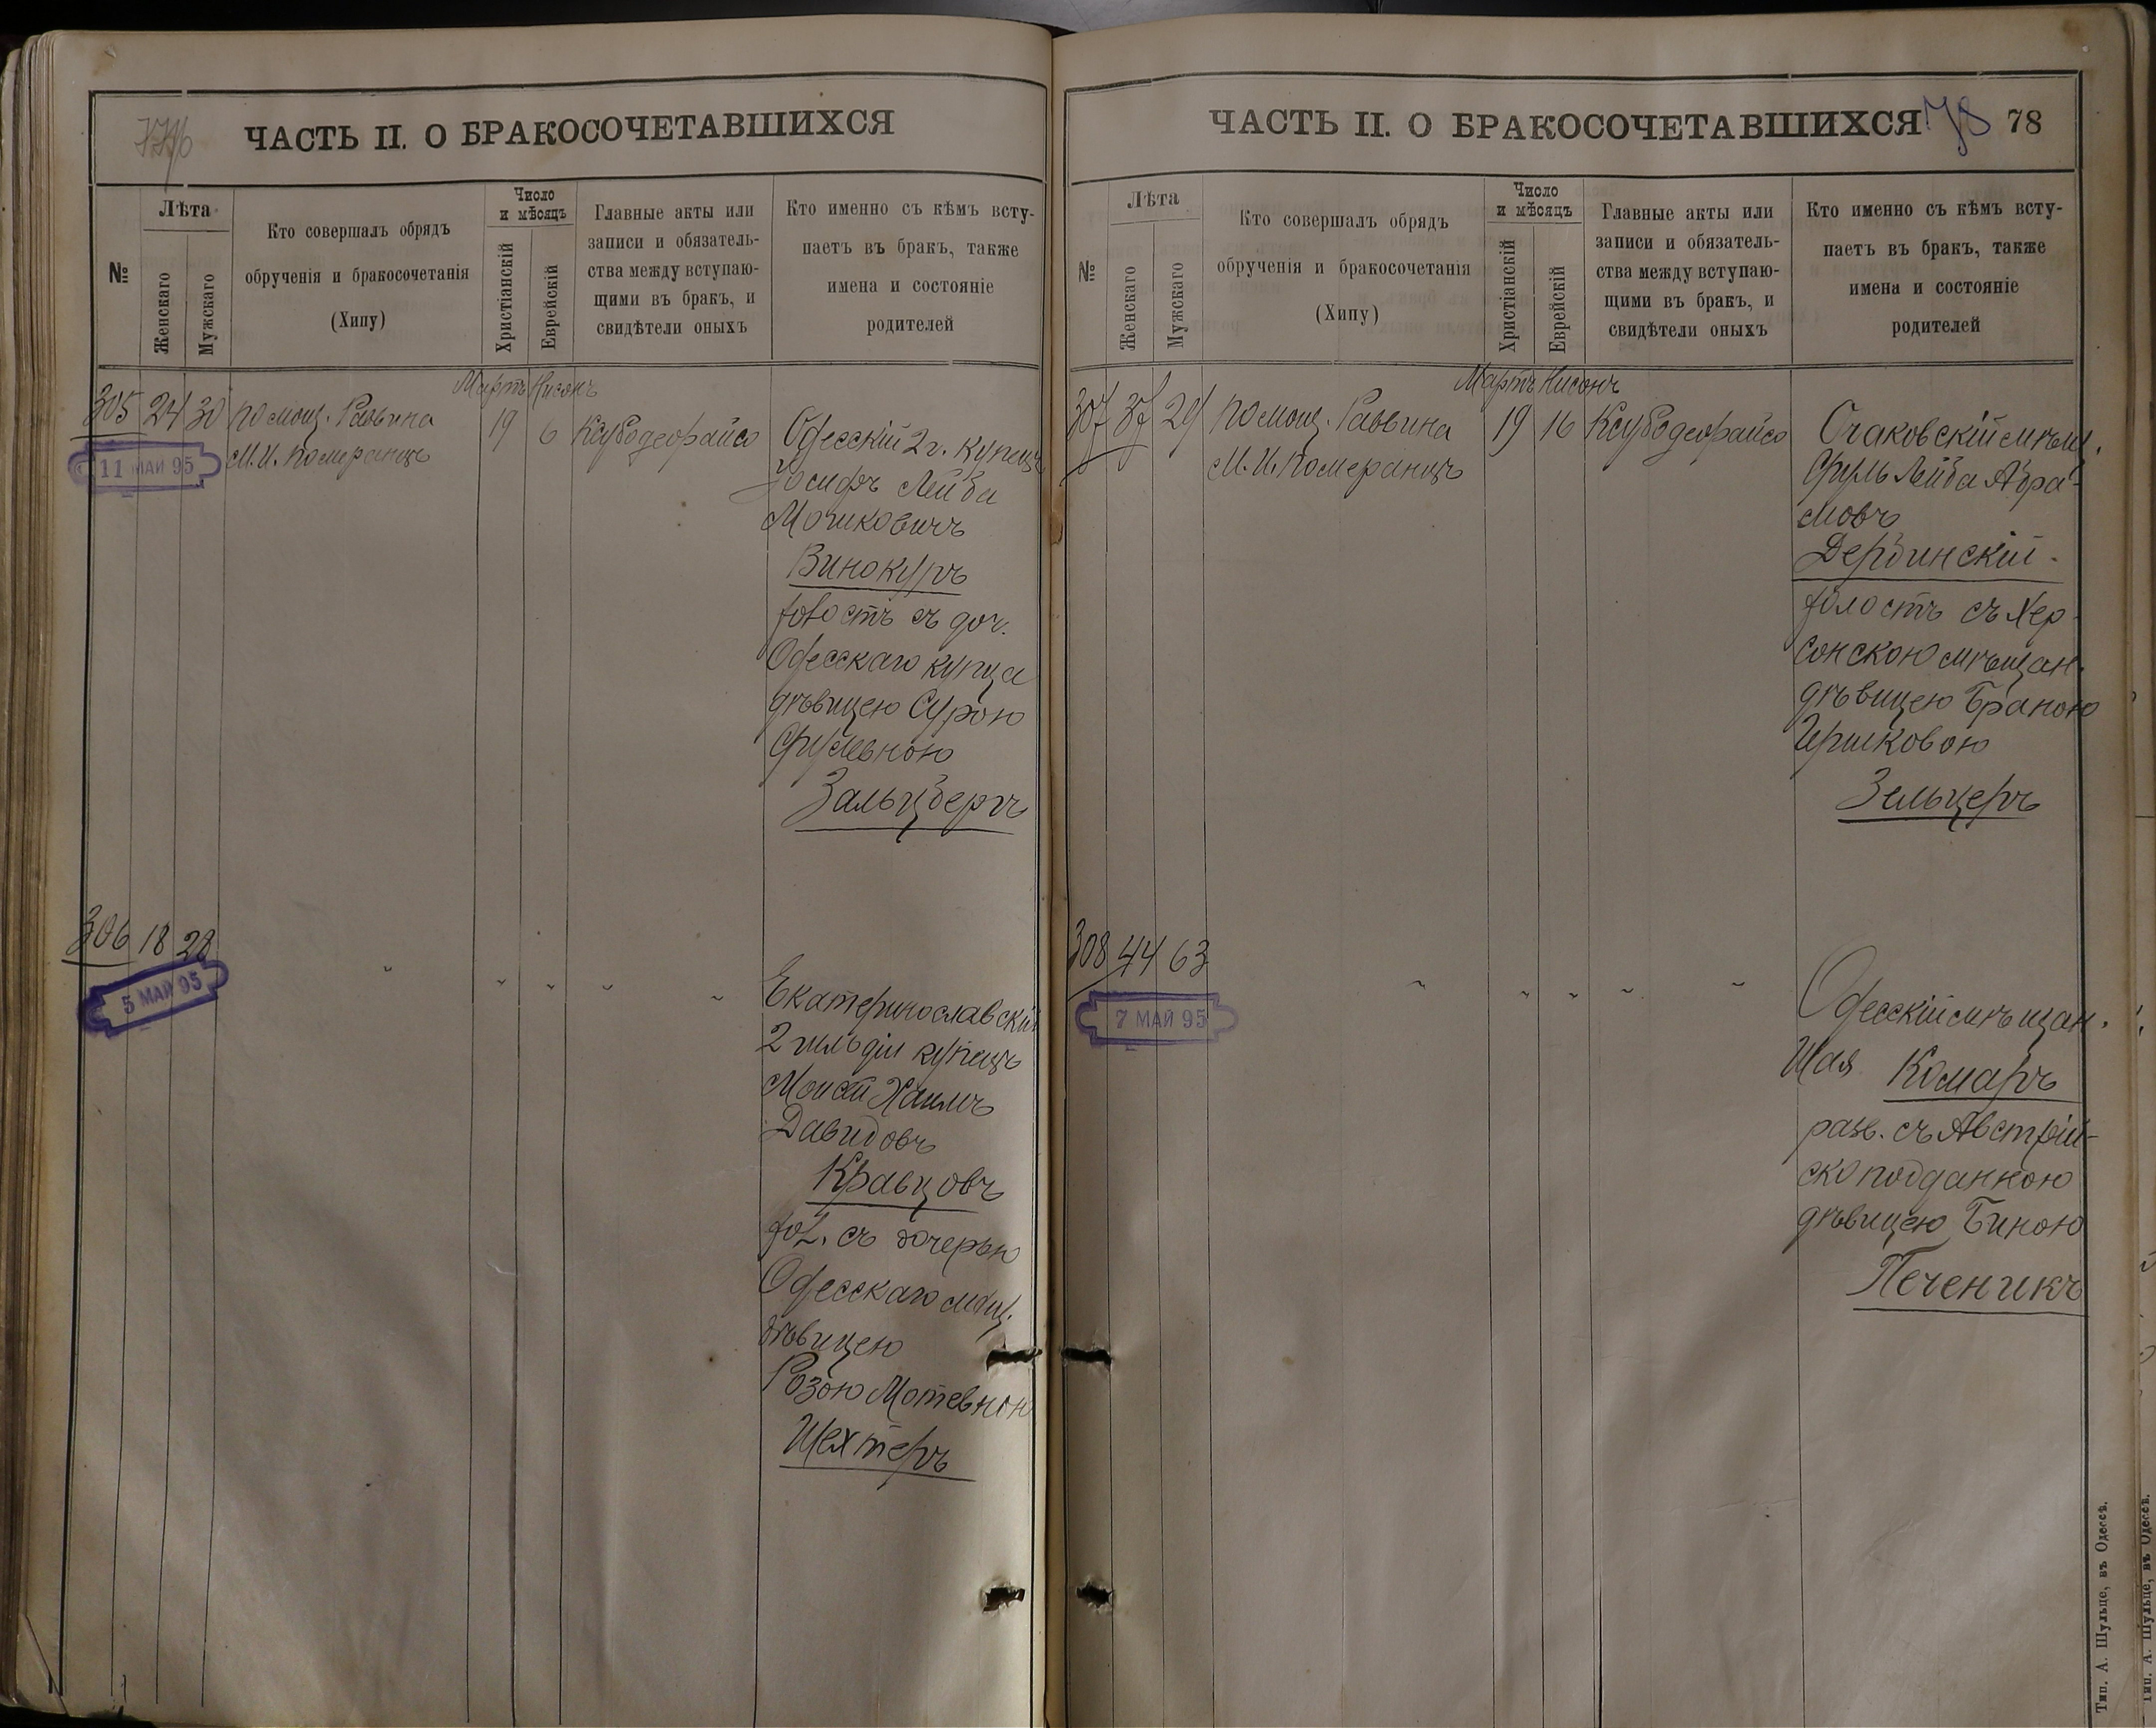 ЧАСТЬ II. О БРАКОСОЧЕТАВШИХСЯ
№
Лѣта
Женскаго
Мужскаго
Кто совершалъ обрядъ
обрученія и бракосочетанія
(Хипу)
Число
и мѣсяцъ
Христіанскій
Еврейскій
Главные акты или
записи и обязатель-
ства между вступаю-
щими въ бракъ, и
свидѣтели оныхъ
Кто именно съ кѣмъ всту-
паетъ въ бракъ, также
имена и состояніе
родителей
Мартъ Нисонъ
305 24 30 Помощ. Раввина 19 6
М. И. Померанцъ
11 МАЙ 95
Одесскій 2 г. купецъ
Іосифъ Лейба
Мошковичъ
Винокуръ
холостъ съ доч.
Одесскаго купца
дѣвицею Сурою
Фулевною
Зальцбергъ
306 18 28
5 МАЙ 95
" " " " "
Екатеринославскій
2 гильдіи купецъ
Моисей Хаимъ
Давидовъ
Кравцовъ
хол. съ дочерью
Одесскаго мѣщ.
дѣвицею
Розою Мотевною
Шехтеръ
ЧАСТЬ II. О БРАКОСОЧЕТАВШИХСЯ 78 78
№
Лѣта
Женскаго
Мужскаго
Кто совершалъ обрядъ
обрученія и бракосочетанія
(Хипу)
Число
и мѣсяцъ
Христіанскій
Еврейскій
Главные акты или
записи и обязатель-
ства между вступаю-
щими въ бракъ, и
свидѣтели оныхъ
Кто именно съ кѣмъ всту-
паетъ въ бракъ, также
имена и состояніе
родителей
Мартъ Нисонъ
307 37 29 Помощ. Раввина 19 16
М. И. Померанцъ
Очаковскій мѣщ.
Лейба Абра-
мовъ
Дербинскій
холостъ съ Хер-
сонскою мѣщан.
дѣвицею Браною
Ершковою
Зельцеръ
308 44 63
7 МАЙ 95
" " " " "
Одесскій мѣщан.
Шая Комаръ
разв. съ Австрій-
ско подданкою
дѣвицею Биною
Печеникъ
Тип. А. Шульце, въ Одессѣ.
Тип. А. Шульце, въ Одессѣ.